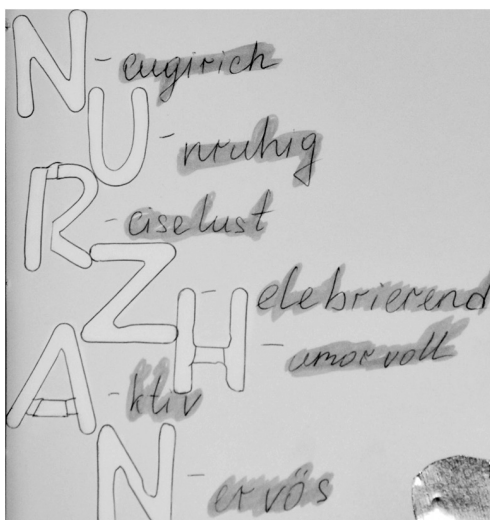 N - eugirich
U - nruhig
R - eiselust
Z - elebrierend
H - umorvoll
A - ktiv
N - ervös